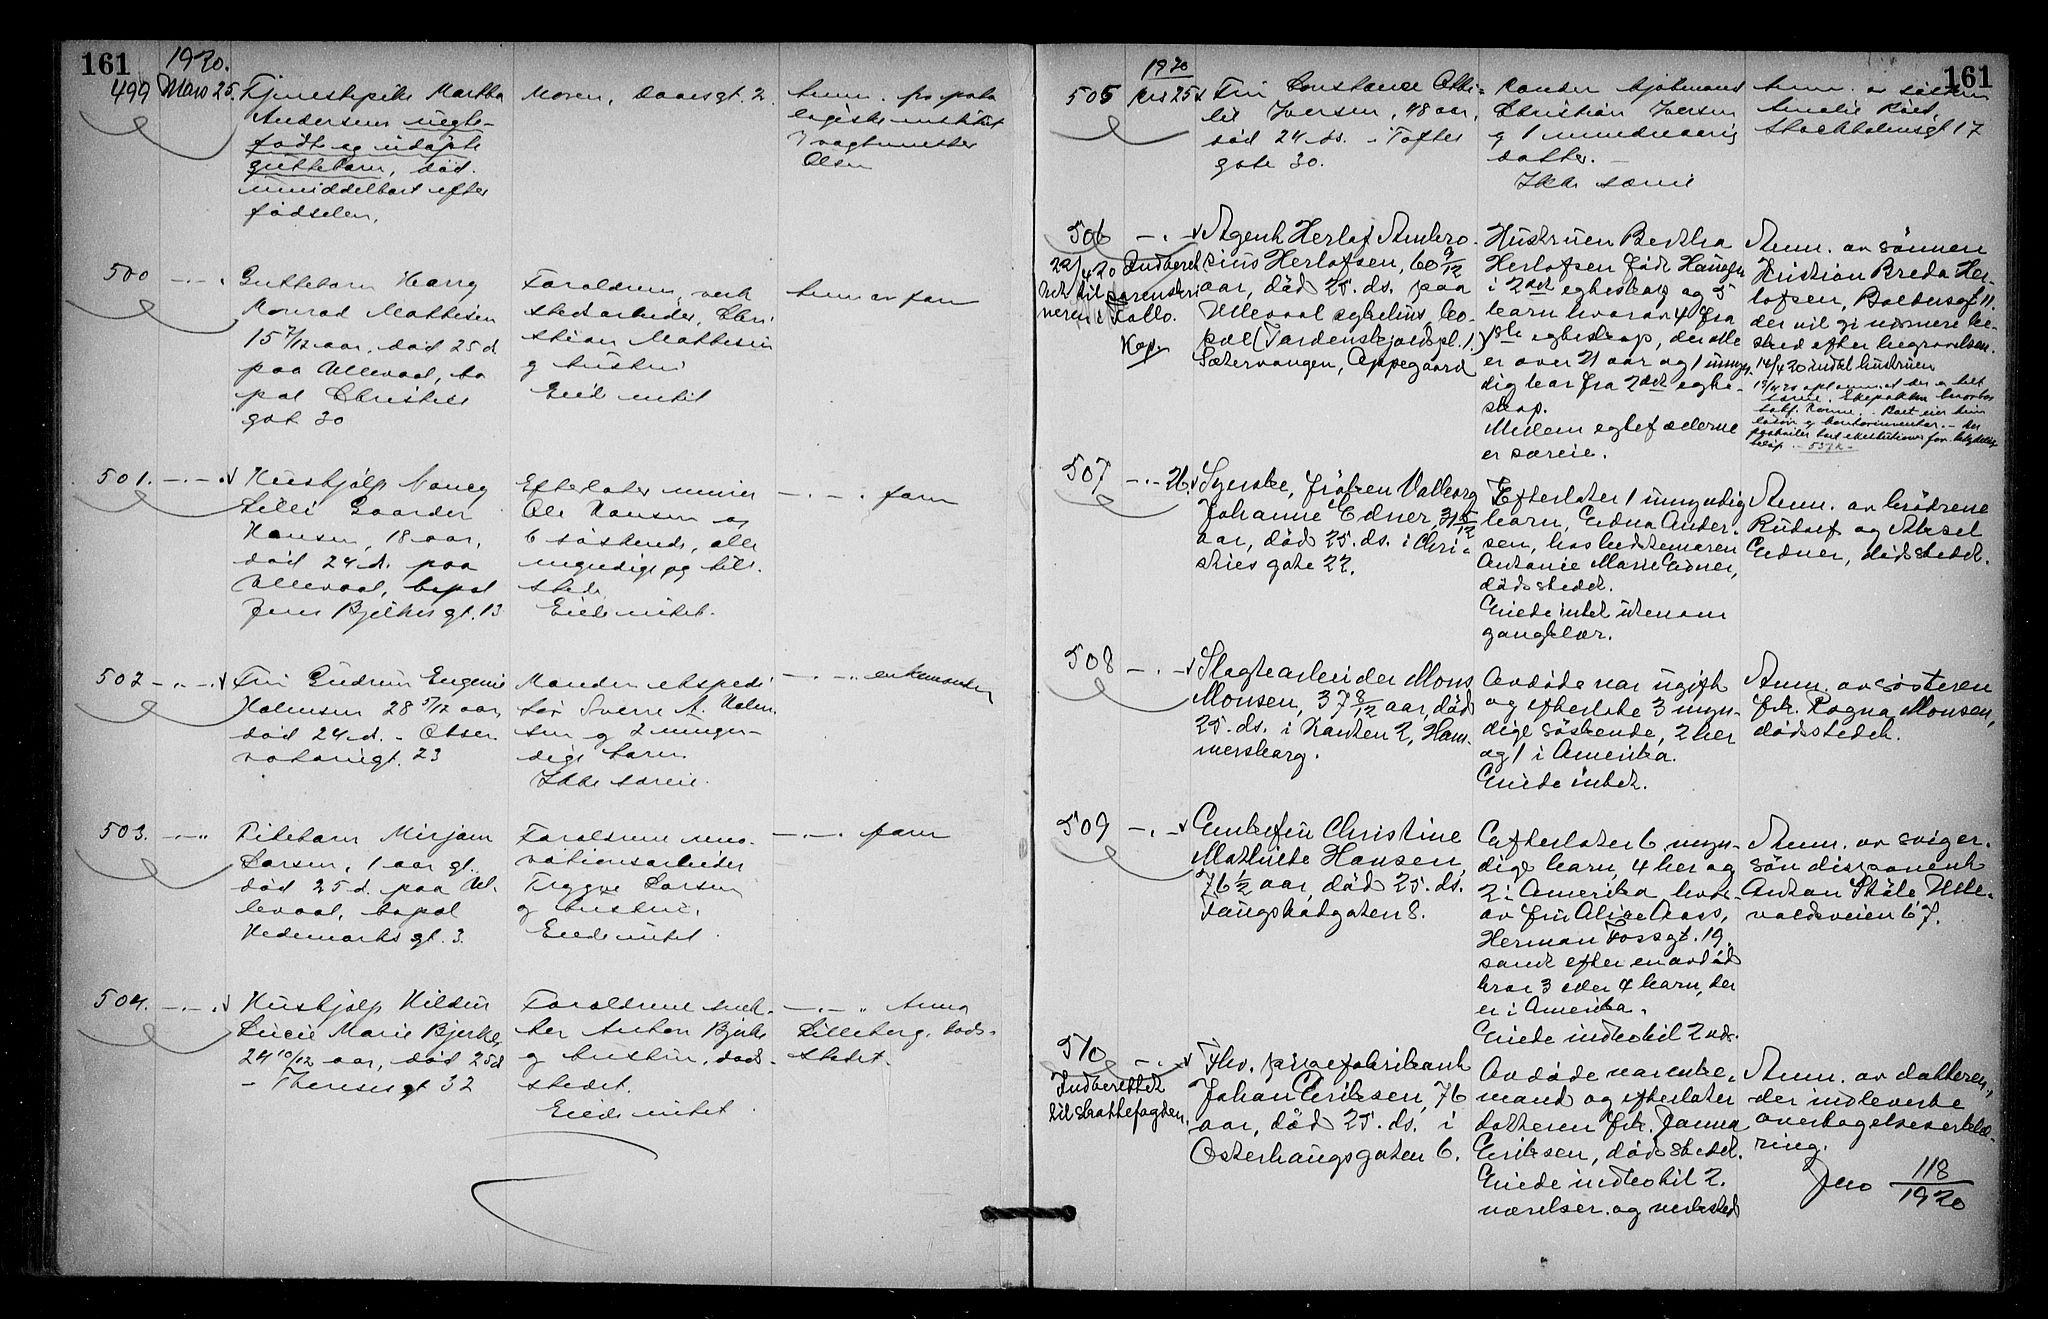 161
1920.
499 Mars 25.
Tjenestepike Martha
Andersens uegte
født og udøpte
guttebarn, død
umiddelbart efter
fødselen.
Moren, Daaesgt. 2.
Anm. fra pato
logiske institut
v vagtmester
Olsen
500 -.-.
Guttebarn Harry
Konrad Mathisen
15 7/12 aar, død 25 d
paa Ullevaal, bo
pæl Christies
gat 30
Forældrene, verk
stedsarbeider Chri
stian Mathisen
og hustru
Eied intet
Anm av faren
501. -.-.
Hushjælp Nancy
Lilli Gaarder
Hansen, 18 aar,
død 24 d. paa
Ullevaal, bopæl
Jens Bjelkes gt. 13
Efterlater murer
Ole Hansen og
6 søskende, alle
myndige og til
stede
Eiede intet.
-.-. faren
502 -.-.
Fru Gudrun Eugenie
Halmsen 28 5/12 aar,
død 24 d. - Obser
vatoriegt. 23
Manden ekspedi
tør Sverre A. Halm
sen og 2 umyn-
dige barn.
Ikke særeie.
-.-. enkemanden
503. -.-.
Pikebarn Mirjam
Larsen, 1 aar gl.
død 25 d. paa Ul
levaal, bopæl
Hedemarks gt. 3.
Forældrene reno-
vationsarbeider
Trygve Larsen
og hustru.
Eiede intet.
-.-. faren
504. -.-.
Hushjælp Hildur
Lucie Marie Bjerke,
24 10/12 aar, død 25 d
- Theresesgt 32
Forældrene snek-
ker Anton Bjerke
og hustru, døds-
stedet.
Eiede intet.
-.-. Anna
Lilleberg, døds-
stedet.
161
1920
505 Mrs 25
Fru Constance Otti-
lie Iversen, 48 aar,
død 24 ds. i Toftes
gate 30.
Manden sjømand
Christian Iversen
og 1 umyndig
datter. -
Ikke særeie
Anm. av søsteren
Amalie
Stockholmsgt 17
506 -.-
22/4 20 Indberet
tet til sorenskri
veren i Follo.
Kop.
Agent Herlof Ambro-
sius Herlofsen, 60 9/12
aar, død 25. ds. paa
Ullevaal sykehus, bo-
pæl (Tordenskjolds pl. 1.)
Sætervangen, Oppegaard
Hustruen Bertha
Herlofsen født Hansen
i 2det egteskap og 5
barn hvorav 4 fra
1ste egteskap, der alle
er over 21 aar og 1 umyn-
dig bar fra 2det egte-
skap.
Mellem egtefællerne
er særeie.
Anm. av sønnen
Kristian Breda Her-
lofsen, Baldersgt 11.
der vil gi nærmere be-
sked efter begravelsen.
14/4 20 indtal hustruen
507 -.- 26.
Syerske, frøken Valborg
Johanne Edner, 31 5/12
aar, død 25. ds. i Chri-
sties gate 22.
Efterlater 1 umyndig
barn, Edna Ander-
sen, hos bedstemoren
Antonie Marie Edner,
dødsstedet.
Eiede intet utenom
gangklær.
Anm. av brødrene
Rudolf og Aksel
Edner, dødsstedet.
508 -.-
Slagtearbeider Mons
Monsen, 37 8/12 aar, død
25. ds. i Kanten 2, Ham-
mersborg.
Avdøde var ugift
og efterlote 3 myn-
dige søskende, 2 her
og 1 i Amerika.
Eiede intet.
Anm. av søsteren
frk. Ragna Monsen,
dødsstedet.
509 -.-
Enkefru Christine
Mathilde Hansen,
76 1/2 aar, død 25. ds.
Vaugskotgaten 8.
Efterlater 6 myn-
dige barn, 4 her og
2 i Amerika, hvor-
av fru Alice Aass,
Herman Fossgt. 19.
samt efter en avdød
bror 3 eller 4 barn, der
er i Amerika.
Eiede indbo til 2 vds.
Anm. av sviger-
søn disponent
Anton Skøle Ulle-
valdsveien 67.
510 -.-
Indberettet
til skattefogden.
Fhv. pipefabrikant
Johan Eriksen, 76
aar, død 25. ds. i
Østerhaugsgaten 6.
Avdøde var enke-
mand og efterlater
datteren frk. Janna
Eriksen, dødsstedet.
Eiede indbo til 2
værelser og verksted
Anm. av datteren,
der indleverte
overtagelseserklæ-
ring.
Jno 118/1920